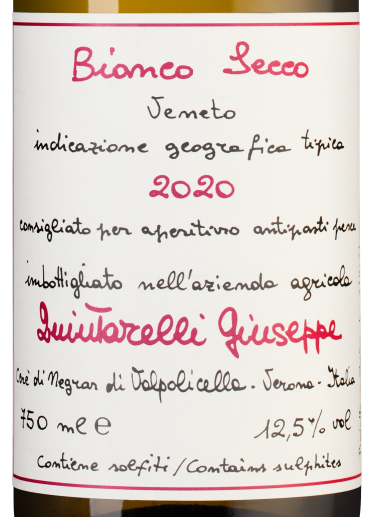 Bianco Secco
Veneto
indicazione geografica tipica
2020
consigliato per aperitivo antipasti pesce
imbottigliato nell'azienda agricola
Quintarelli Giuseppe
Cerè di Negrar di Valpolicella - Verona - Italia
750 ml e 12,5% vol
Contiene solfiti / Contains sulphites